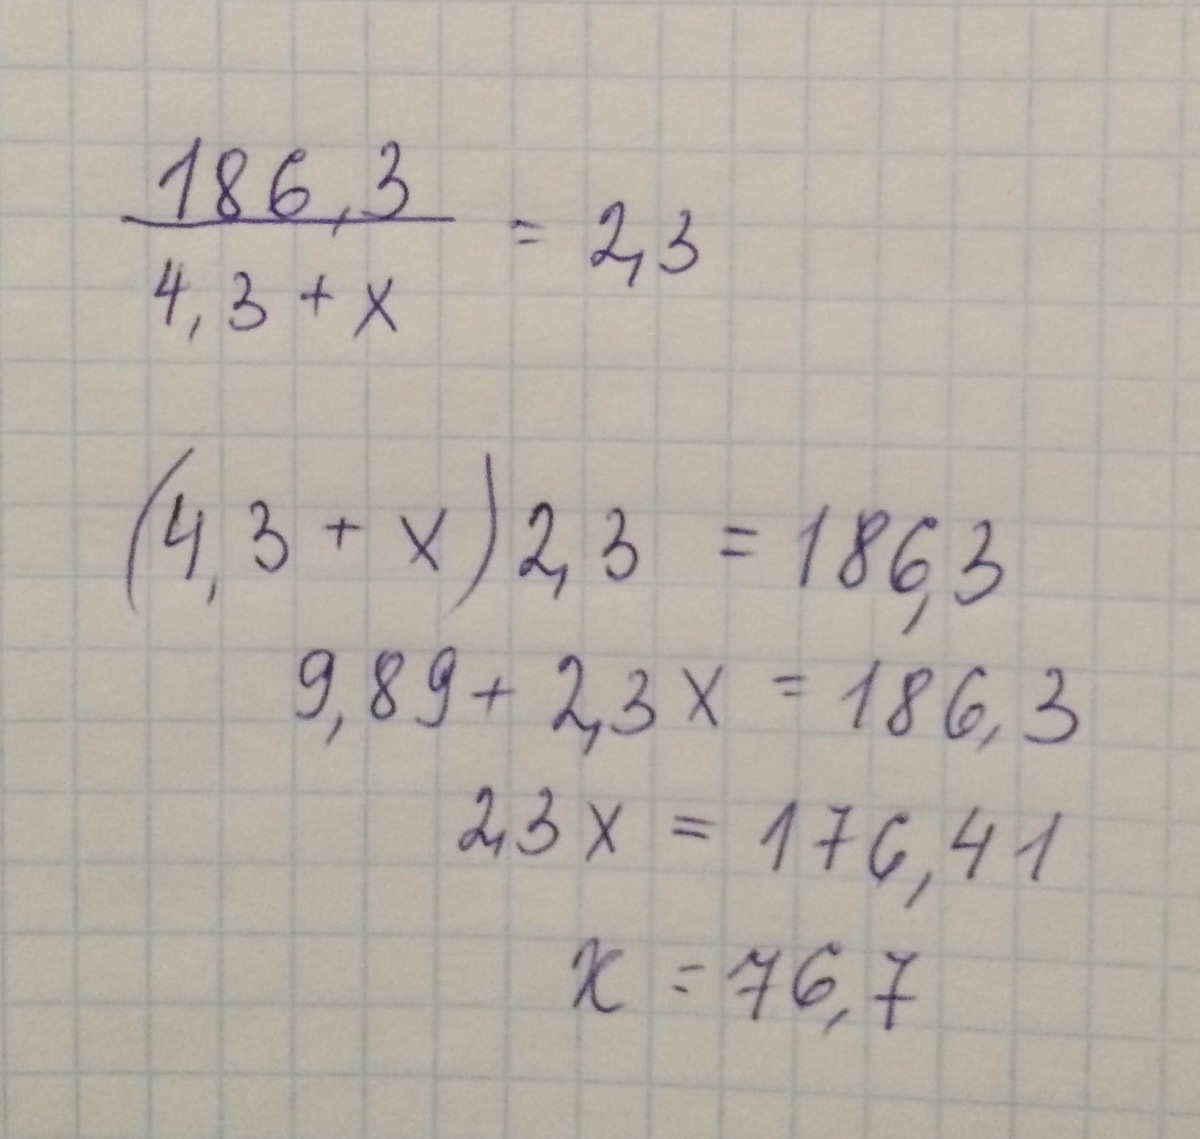 186,3
4,3 + x = 2,3
(4,3 + x) 2,3 = 186,3
9,89 + 2,3 x = 186,3
2,3 x = 176,41
x = 76,7